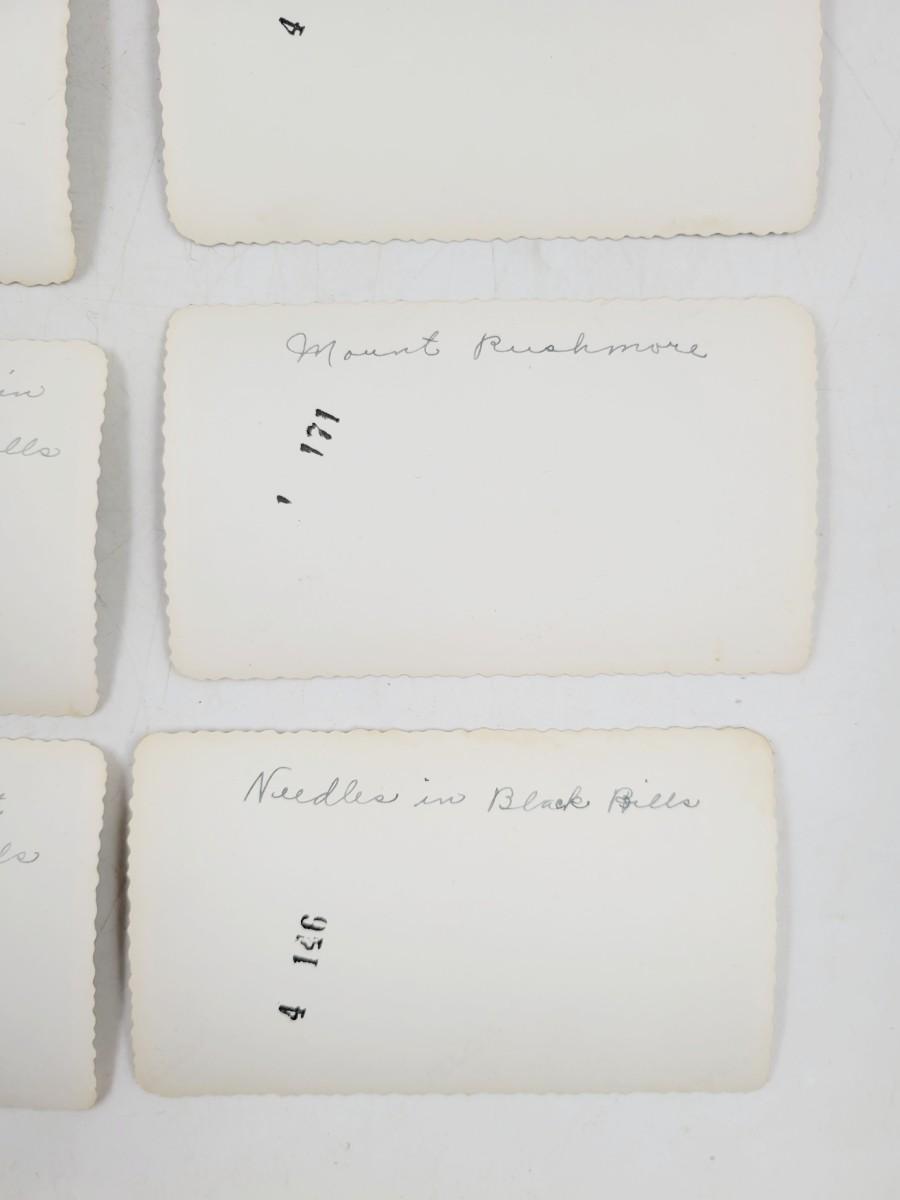 4
in
ills
Mount Rushmore
171
ls
Needles in Black Bills
4